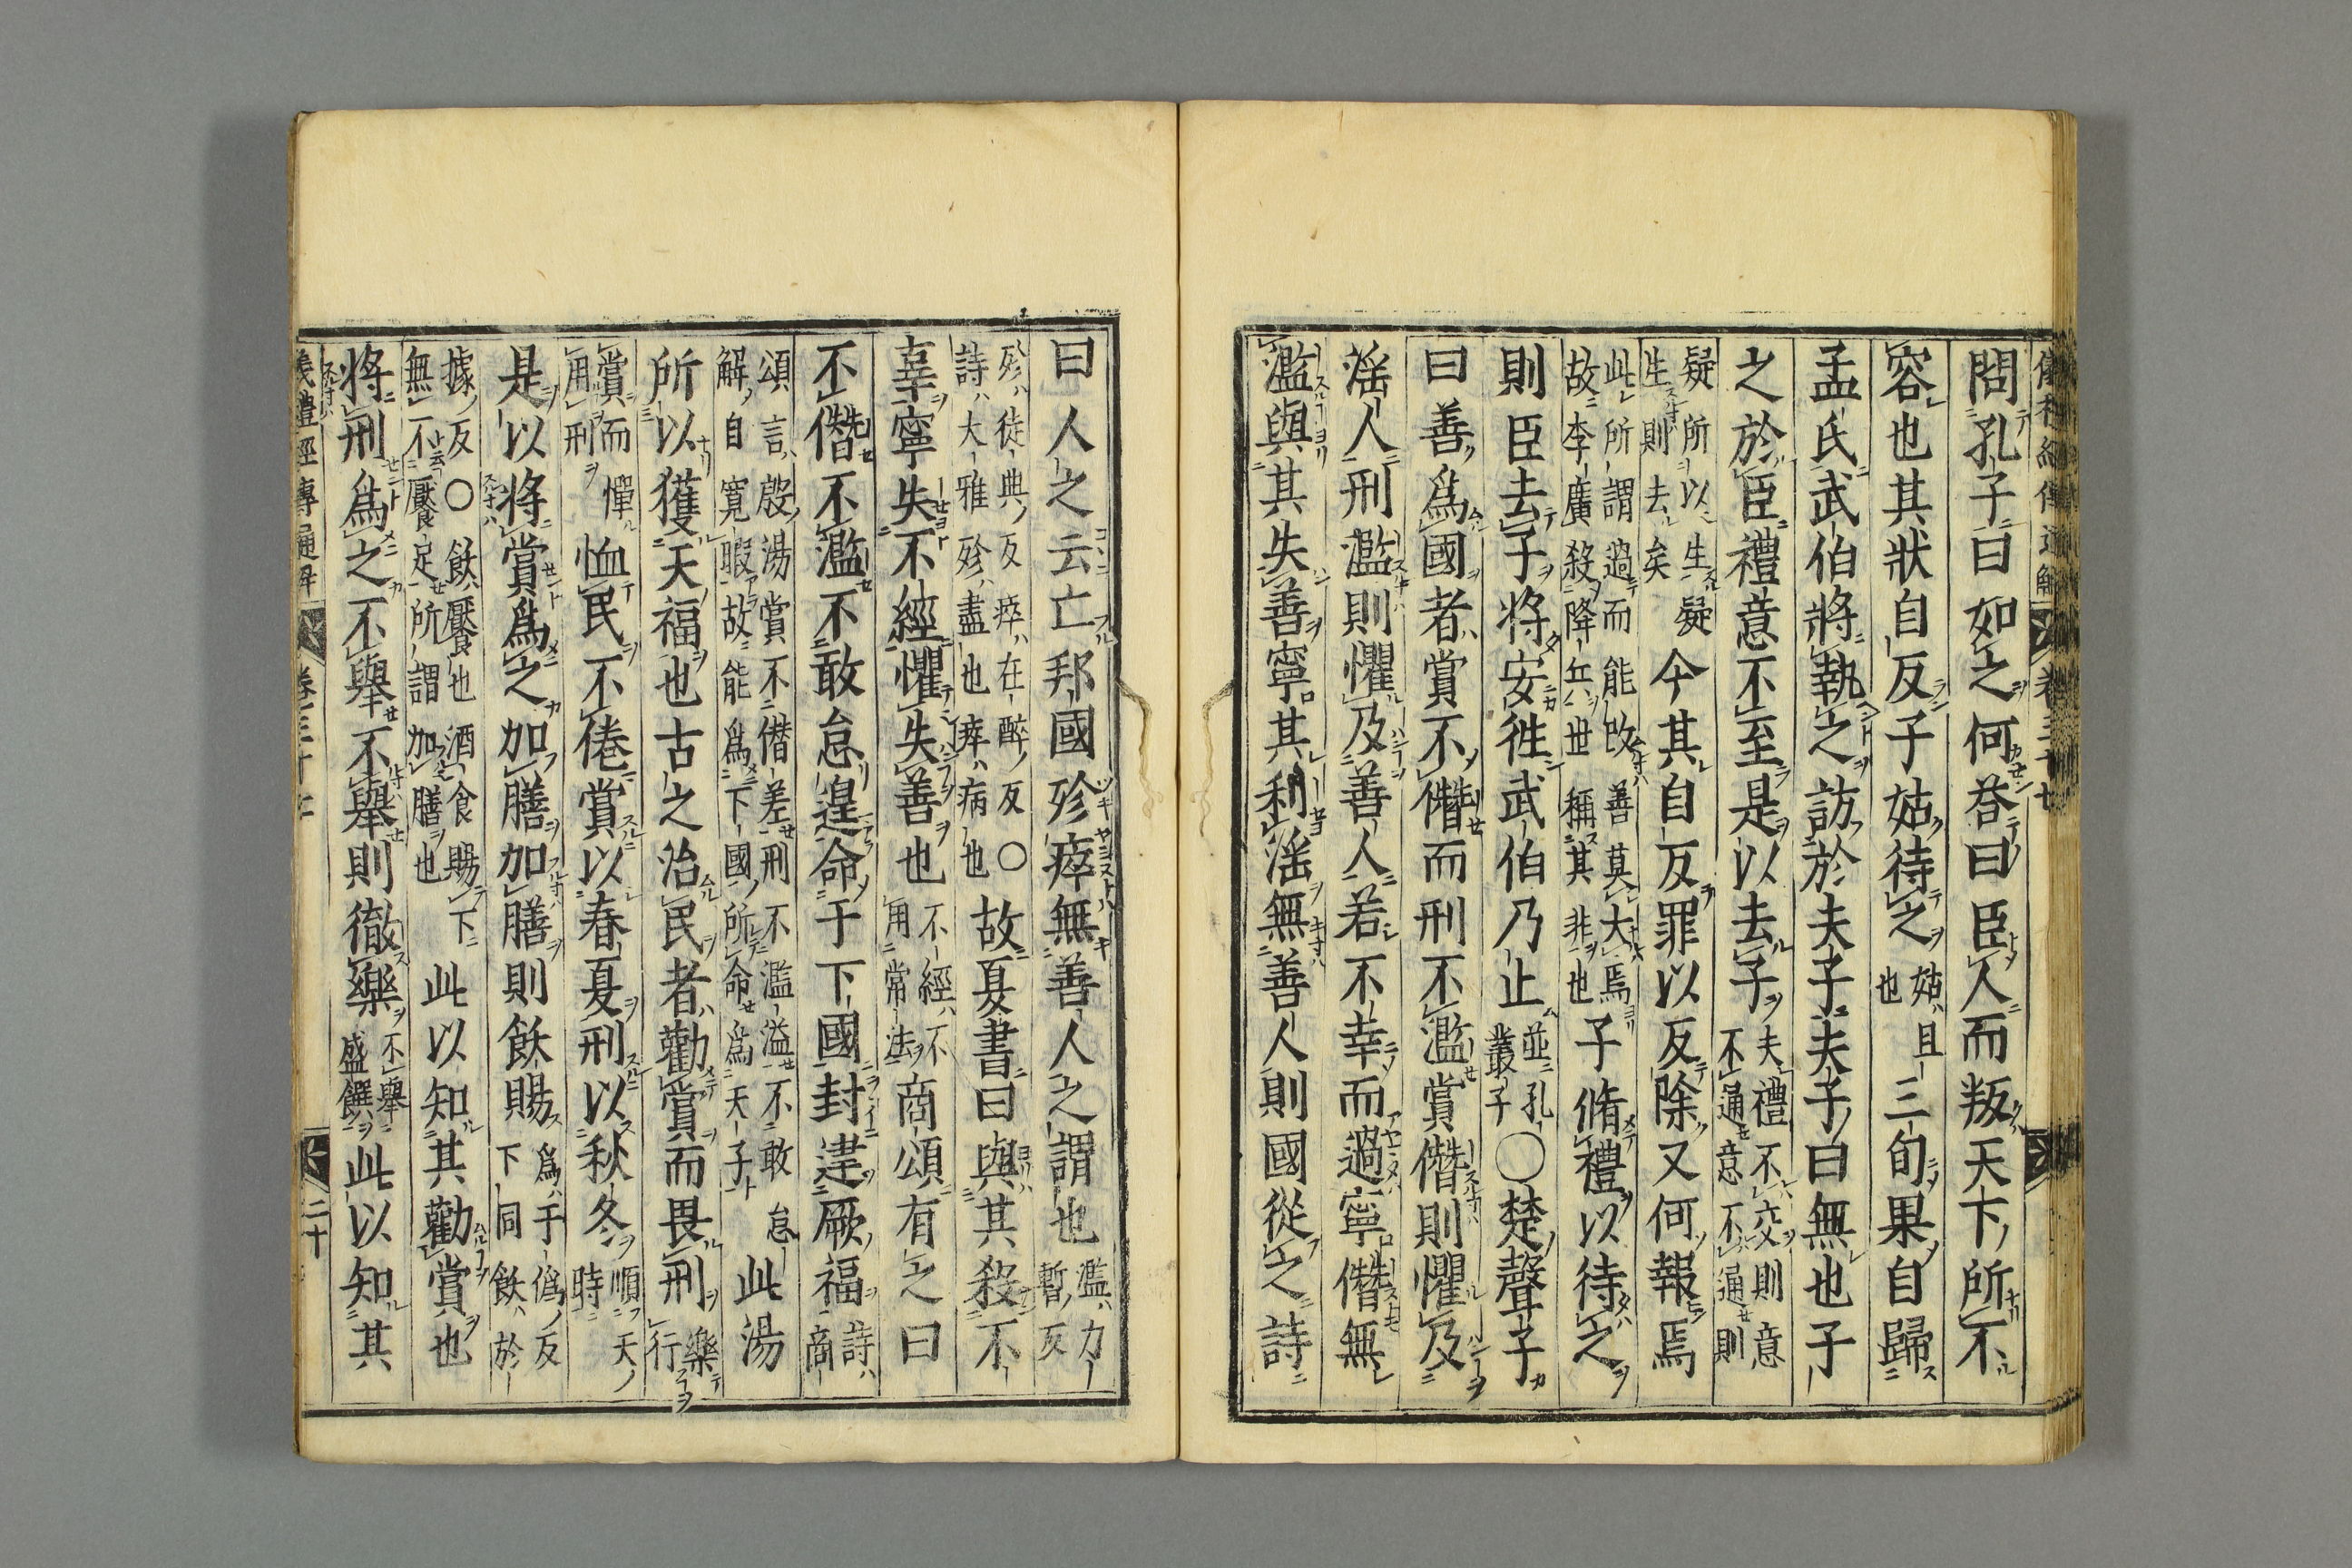 儀禮經傳通解 卷三十七
問孔子曰如之何荅曰臣人而叛天下所不
容也其狀自反子姑待之姑且也三旬果自歸
孟氏武伯將執之訪於夫子夫子曰無也子
之於臣禮意不至是以去子夫禮不交則意不通意不通則
疑所以生疑生則去矣今其自反罪以反除又何報焉
此所謂過而能改善莫大焉故李廣殺降丘世稱其非也子脩禮以待之
則臣去子將安徃武伯乃止並孔叢子〇楚聲子
曰善爲國者賞不僭而刑不濫賞僭則懼及
滛人刑濫則懼及善人若不幸而過寧僭無
濫與其失善寧其利滛無善人則國從之詩
曰人之云亡邦國殄瘁無善人之謂也濫力暫反
殄徒典反瘁在醉反〇詩大雅殄盡也瘁病也故夏書曰與其殺不
辜寧失不經懼失善也不經不用常法商頌有之曰
不僭不濫不敢怠遑命于下國封建厥福詩商
頌言殷湯賞不僭差刑不濫溢不敢怠解自寬暇故能爲下國所命爲天子此湯
所以獲天福也古之治民者勸賞而畏刑樂行
賞而憚用刑恤民不倦賞以春夏刑以秋冬順天時
是以將賞爲之加膳加膳則飫賜爲于僞反下同飫於
據反〇飫饜也酒食賜下無不饜足所謂加膳也此以知其勸賞也
將刑爲之不舉不舉則徹樂不舉盛饌此以知其
儀禮經傳通解 卷三十七 二十